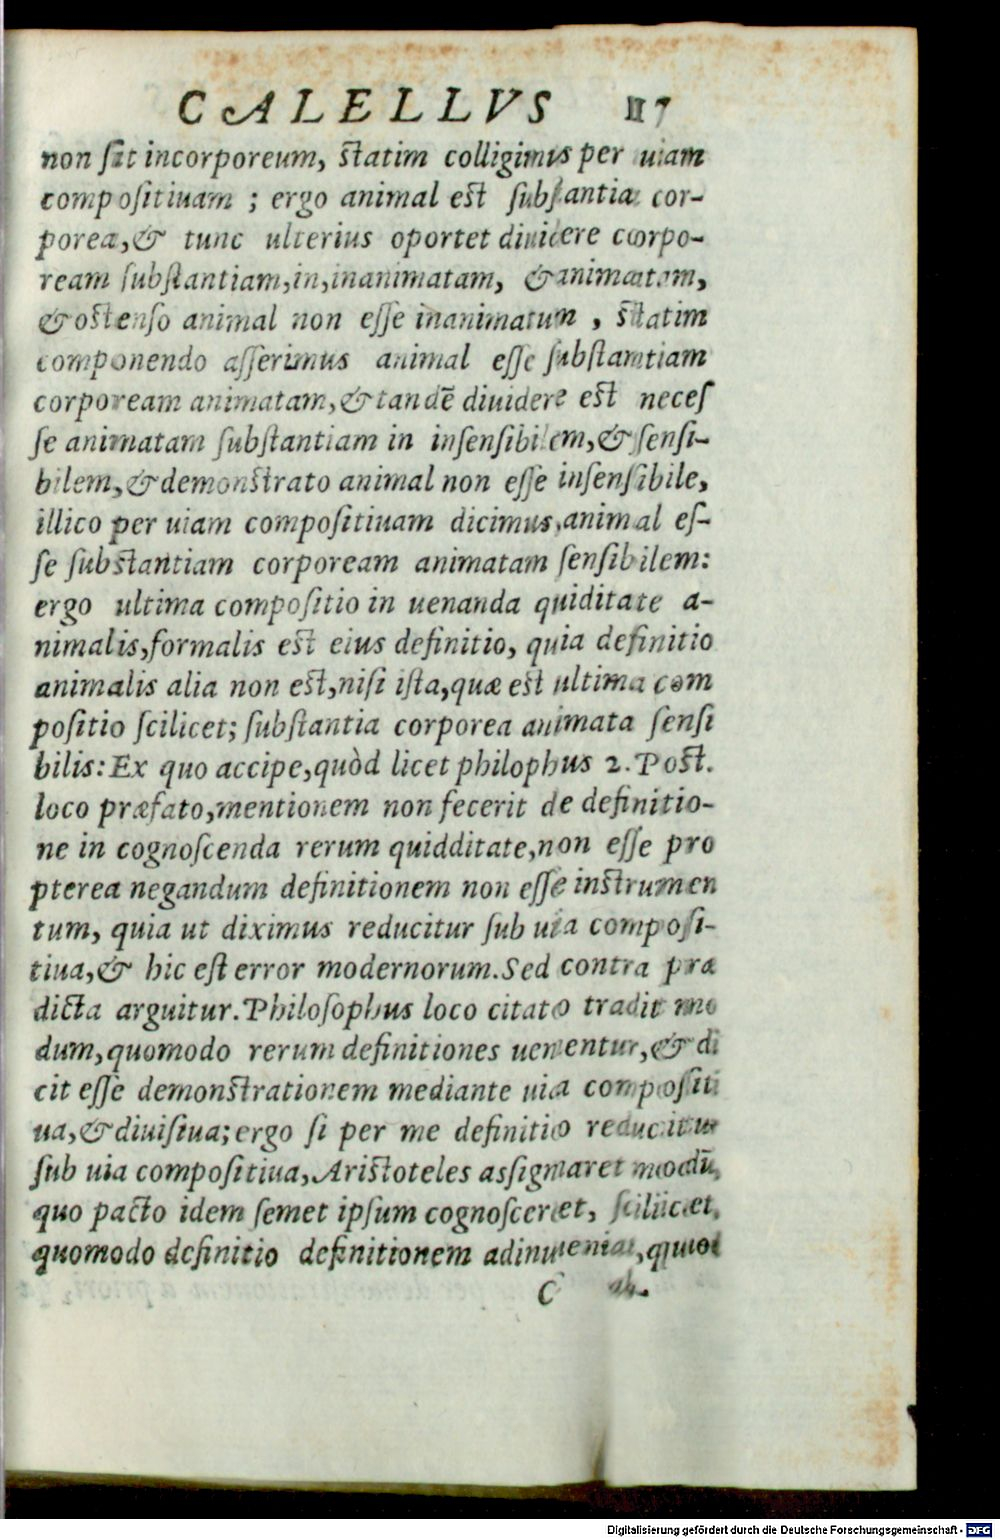 CALELLVS 17
non sit incorporeum, statim colligimus per uiam
compositiuam ; ergo animal est substantia cor-
porea,& tunc ulterius oportet diuidere corpo-
ream substantiam,in,inanimatam, & animatam,
& ostenso animal non esse inanimatum , statim
componendo asserimus animal esse substantiam
corpoream animatam,& tandē diuidere est neces
se animatam substantiam in insensibilem,& sensi-
bilem,& demonstrato animal non esse insensibile,
illico per uiam compositiuam dicimus,animal es-
se substantiam corpoream animatam sensibilem:
ergo ultima compositio in uenanda quiditate a-
nimalis,formalis est eius definitio, quia definitio
animalis alia non est,nisi ista,quæ est ultima com
positio scilicet; substantia corporea animata sensi
bilis: Ex quo accipe,quòd licet philophus 2. Post.
loco præfato,mentionem non fecerit de definitio-
ne in cognoscenda rerum quidditate,non esse pro
pterea negandum definitionem non esse instrumen
tum, quia ut diximus reducitur sub uia composi-
tiua,& hic est error modernorum. Sed contra præ
dicta arguitur. Philosophus loco citato tradit mo
dum,quomodo rerum definitiones uenentur,& di
cit esse demonstrationem mediante uia compositi
ua,& diuisiua; ergo si per me definitio reducitur
sub uia compositiua, Aristoteles assignaret modū,
quo pacto idem semet ipsum cognosceret, scilicet,
quomodo definitio definitionem adinueniat, quod
C